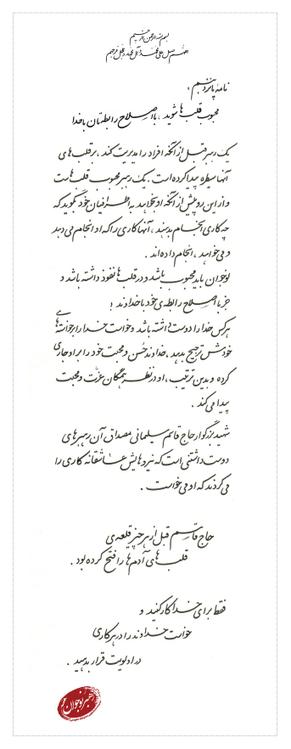 بسم الله الرحمن الرحیم
اللهم صل علی محمد و آل محمد و عجل فرجهم
نامه پانزدهم:
محبوب قلب‌ها شوید. با اصلاح رابطتان با خدا
یک رهبر قبل از آنکه افراد را مدیریت کند بر قلب‌های
آنها سیطره پیدا کرده است. یک رهبر محبوب قلب‌هاست
و از این رو پیش از آنکه او بخواهد به اطرافیان خود بگوید که
چه کاری انجام بدهند، آنها کاری را که او انجام می‌دهد
و می‌خواهد، انجام داده‌اند.
نوجوان باید محبوب باشد و در قلب‌ها نفوذ داشته باشد و
جز با اصلاح رابطه‌ی خود با خداوند!
هرکس خدا را دوست داشته باشد و خواست خدا را بر خواسته‌هایی
خودش ترجیح بدهد. خداوند حُسن و محبت خود را بر او جاری
کرده و بدین ترتیب، او در نظر همگان عزت و محبت
پیدا می‌کند.
شهید بزرگوار حاج قاسم سلیمانی مصداق آن رهبرهای
دوست داشتنی است که نیروهایش عاشقانه کاری را
می‌کردند که او می‌خواست.
حاج قاسم قبل از هر چیز قلعه‌ی
قلب‌های آدم‌ها را فتح کرده بود.
فقط برای خدا کار کنید و
خواست خداوند را در هر کاری
در اولویت قرار بدهید.
رهبر نوجوان